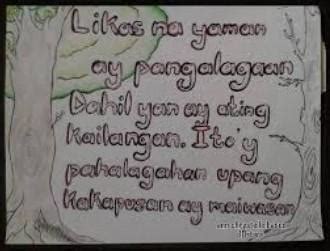 Likas na yaman
ay pangalagaan
Dahil yan ay ating
kailangan. Ito'y
pahalagahan upang
kakapusan ay maiwasan